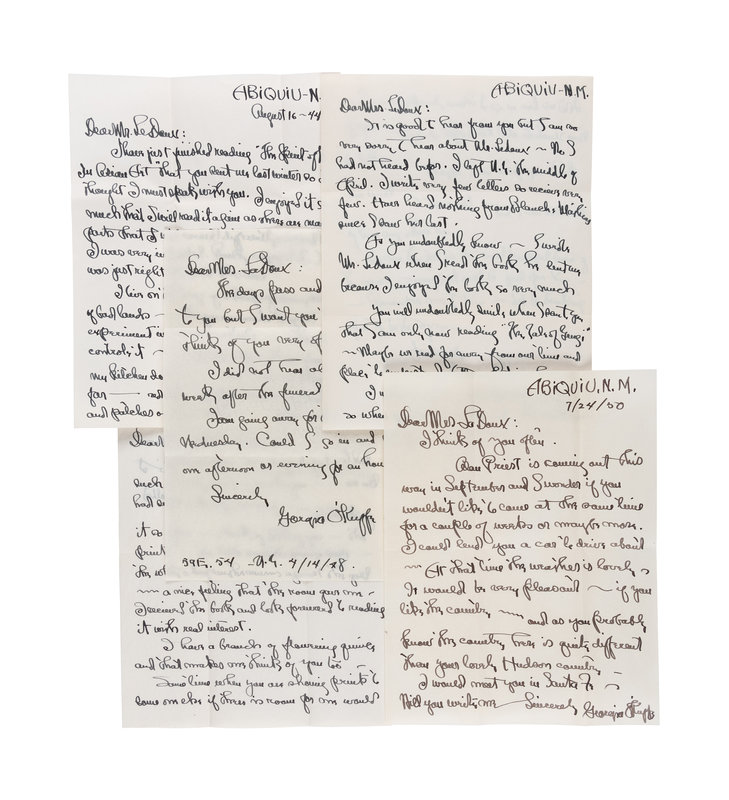 ABIQUIU-N.
August 16-44
Dear Mr. LeDoux:
I have just finished reading "The Spirit of
In Asian Art" that you sent us last winter so
thought I must speak with you. I enjoyed it s
much that I will read it again as there are ma
parts that I w
I was very w
was just right
I live on
of bad lands —
experiment
controls it —
my kitchen do
far — and
and patches o
ABIQUIU-N.M.
Dear Mrs LeDoux:
It is good to hear from you but I am so
very sorry to hear about Mr. LeDoux — No I
had not heard before. I left N.Y. the middle of
April. I write very few letters so receive very
few. Have heard nothing from Blanche Matthias
since I saw her last.
As you undoubtedly know — I wrote
Mr. LeDoux when I read the book he sent me
because I enjoyed the book so very much
You will undoubtedly smile when I tell you
that I am only now reading "The Tale of Genji"
— Maybe we read far away from our time and
place
I w
so when
Dear Mrs. LeDoux:
The days pass and
to you but I want you
think of you very of
I did not hear
week after the funeral
I am going away for
Wednesday. Could I go in and
one afternoon or evening for an hou
Sincerely
Georgia O'Keeffe
59 E. 54 — N.Y. 4/14/48.
Dear
such
had
it a
print
the w
— a nice feeling that the room gave me —
I received the book and look forward to reading
it with real interest.
I have a branch of flowering quince
and that makes me think of you too —
Sometime when you are showing prints to
some one else if there is room for me would
ABIQUIU, N.M.
7/24/50
Dear Mrs. LeDoux:
I think of you often.
Alan Priest is coming out this
way in September and I wonder if you
wouldn't like to come at the same time
for a couple of weeks or maybe more.
I could lend you a car to drive about
— At that time the weather is lovely —
It would be very pleasant — if you
like the country — and as you probably
know the country here is quite different
than your lovely Hudson country —
I would meet you in Santa Fe —
Will you write me — Sincerely Georgia O'Keeffe